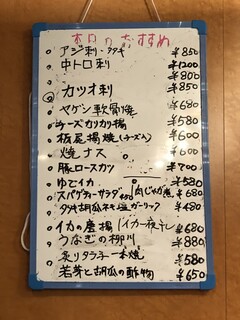 本日のおすすめ
アジ刺・タタキ ¥850
中トロ刺 ¥1200
¥800
カツオ刺 ¥850
ヤゲン軟骨焼 ¥680
チーズカリカリ揚 ¥580
栃尾揚焼(チーズ入) ¥600
焼ナス ¥600
豚ロースカツ ¥700
ゆでイカ ¥580
スパゲティーサラダ 450 肉じゃが煮 ¥680
タタキ胡瓜ネギ塩ガーリック ¥480
イカの唐揚 (イカ一夜干し ¥680
うなぎの柳川 ¥880
炙りタラコ一本焼 ¥580
若芽と胡瓜の酢物 ¥650